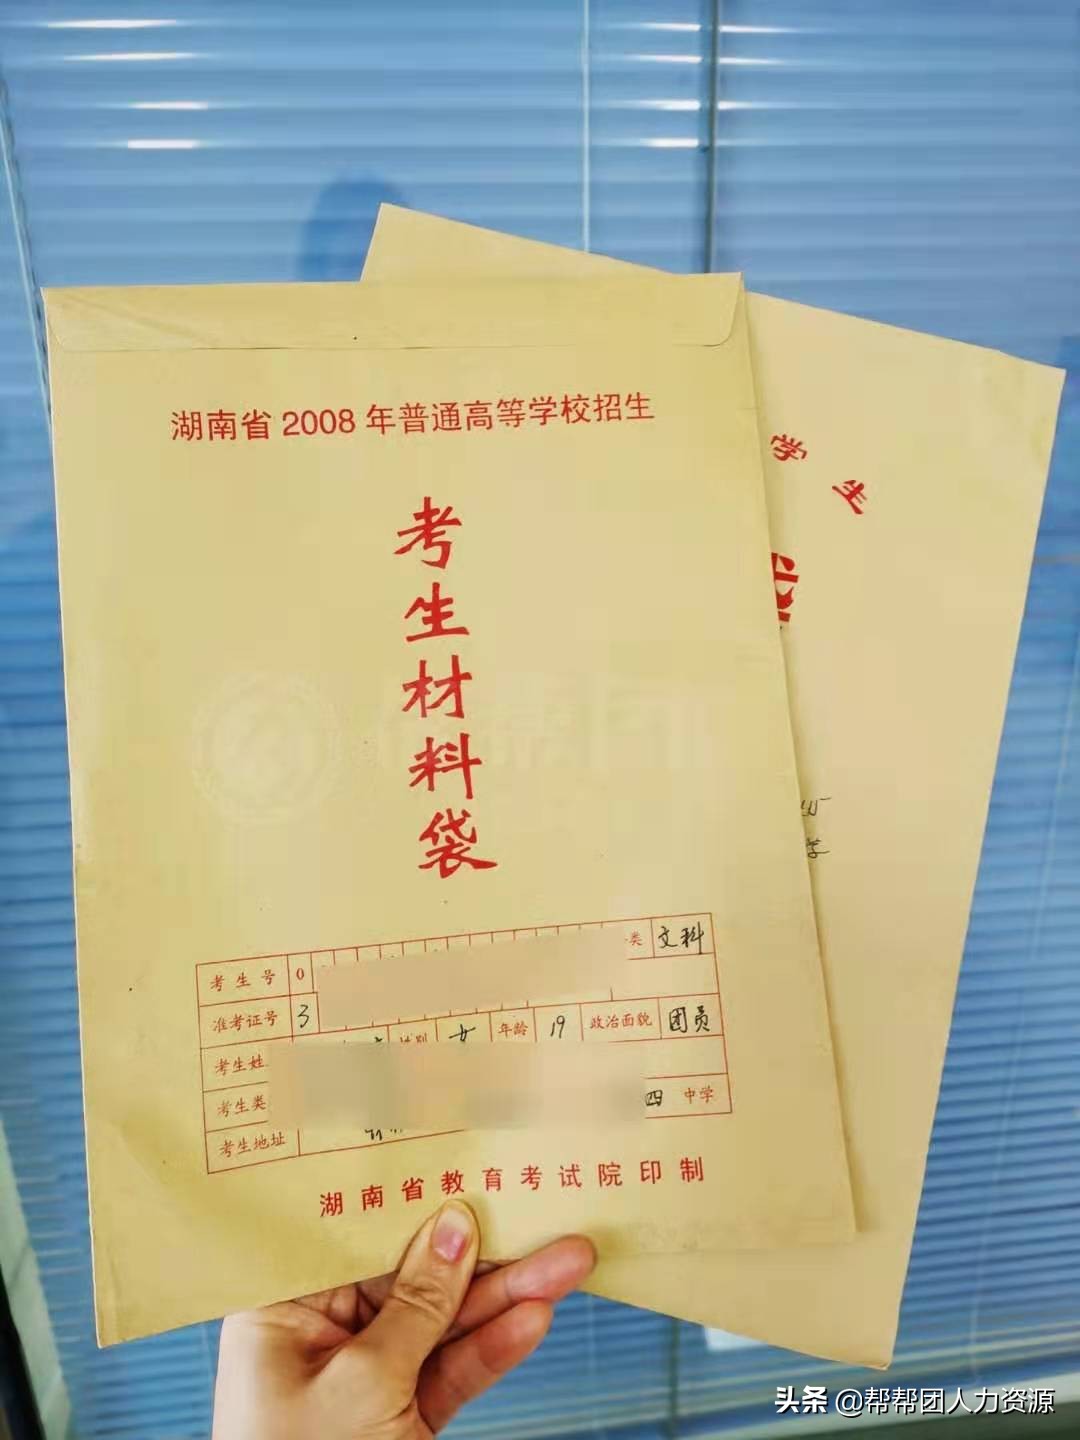 湖南省2008年普通高等学校招生
考生材料袋
考生号 0 类 文科
准考证号 3
考生姓 性别 女 年龄 19 政治面貌 团员
考生类 四 中学
考生地址
湖南省教育考试院印制
学生
学
头条 @帮帮团人力资源